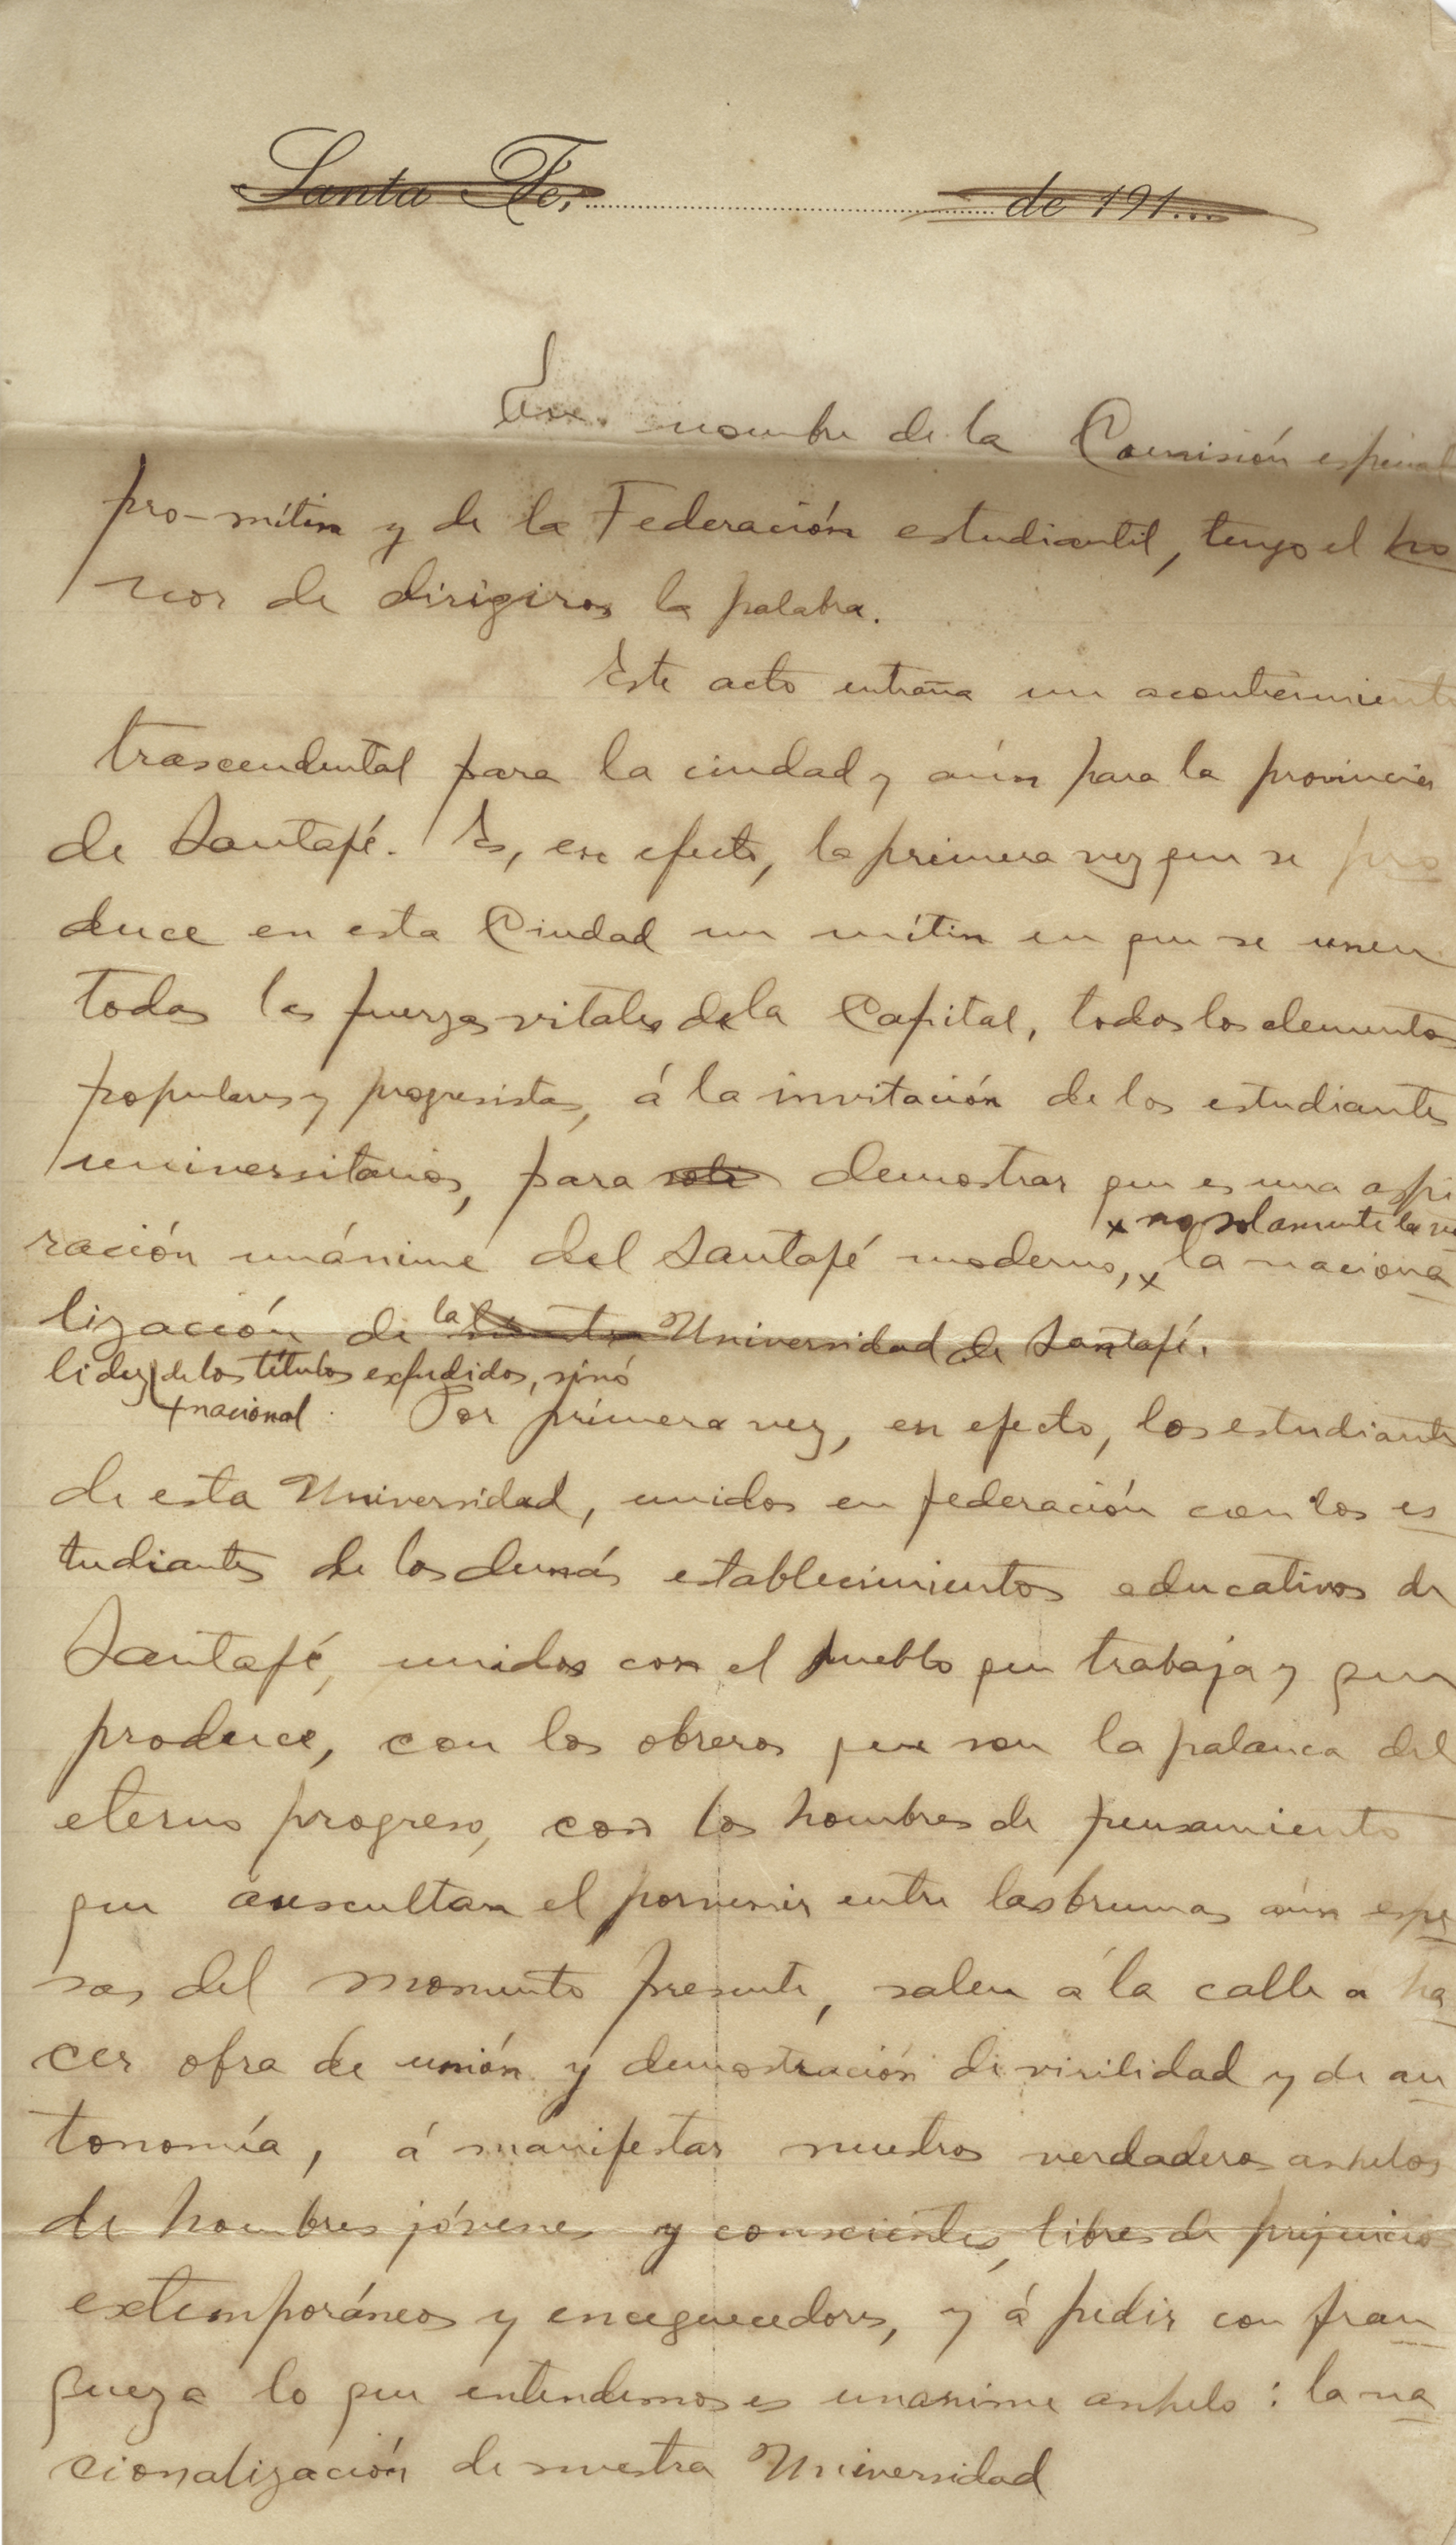 Santa Fe, de 191...
En nombre de la Comisión especial
pro-mítin y de la Federación estudiantil, tengo el ho
nor de dirigiros la palabra.
Este acto entraña un acontecimiento
trascendental para la ciudad y aún para la provincia
de Santafé. Es, en efecto, la primera vez que se pro
duce en esta Ciudad un mítin en que se unen
todas las fuerzas vitales de la Capital, todos los elementos
populares y progresistas, á la invitación de los estudiantes
universitarios, para solo demostrar que es una aspi
x no solamente la va
ración unánime del Santafé moderno, x la naciona
lización de la nuestra Universidad de Santafé.
lidez de los títulos expedidos, sinó
+nacional. Por primera vez, en efecto, los estudiantes
de esta Universidad, unidos en federación con los es
tudiantes de los demás establecimientos educativos de
Santafé, unidos con el pueblo que trabaja y que
produce, con los obreros que son la palanca del
eterno progreso, con los hombres de pensamiento
que auscultan el porvenir entre las brumas aún espe
sas del momento presente, salen á la calle a ha
cer obra de unión y demostración de virilidad y de au
tonomía, á manifestar nuestros verdaderos anhelos
de hombres jóvenes y conscientes, libres de prejuicios
extemporáneos y enceguecedores, y á pedir con fran
queza lo que entendemos es unanime anhelo: la na
cionalización de nuestra Universidad